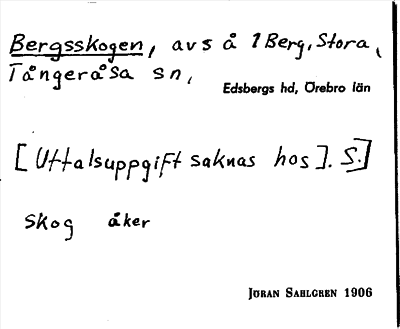 Bergsskogen, avs å 1 Berg, Stora,
Tångeråsa sn,
Edsbergs hd, Örebro län
[Uttalsuppgift saknas hos J. S.]
skog åker
Jöran Sahlgren 1906